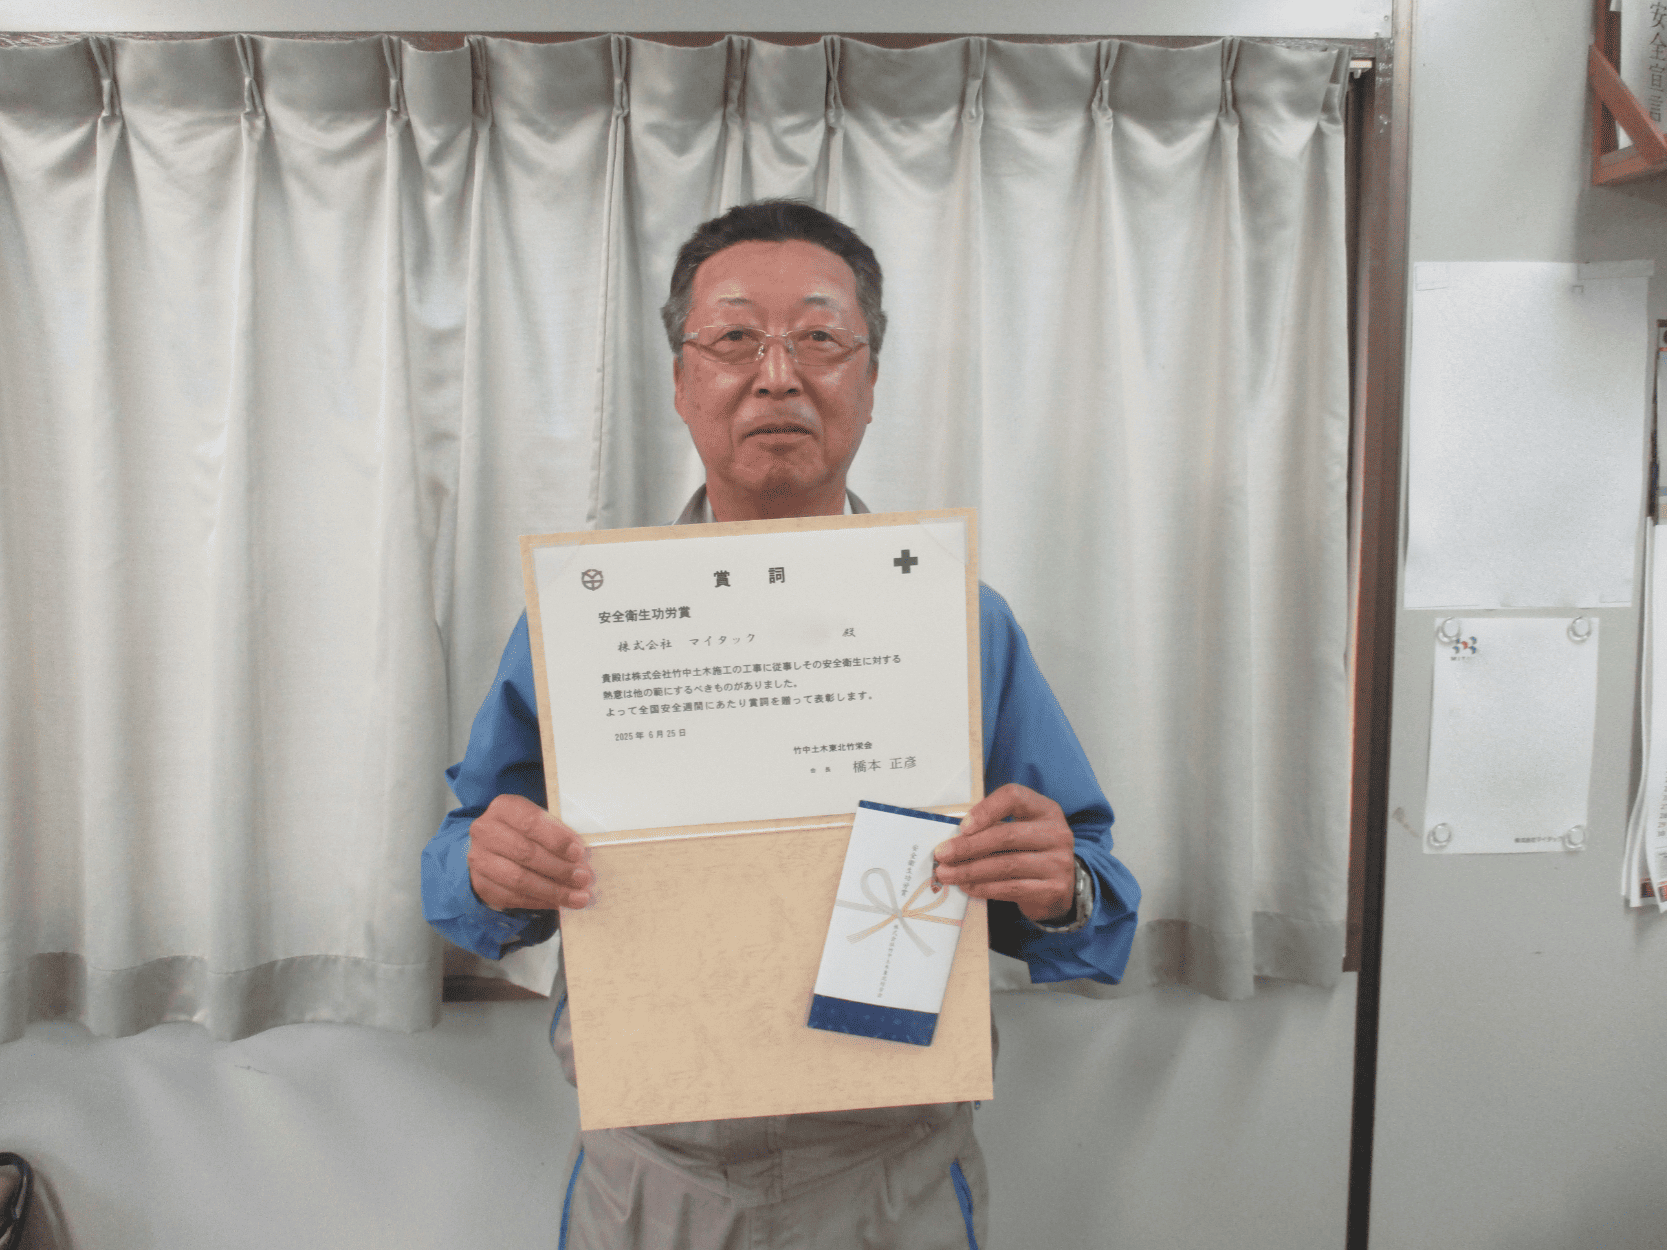 安全宣言
賞 詞
安全衛生功労賞
株式会社 マイタック 殿
貴殿は株式会社竹中土木施工の工事に従事しその安全衛生に対する
熱意は他の範にするべきものがありました。
よって全国安全週間にあたり賞詞を贈って表彰します。
2025年 6月25日
竹中土木東北竹栄会
会 長 橋本 正彦
安全衛生功労賞
株式会社マイタック